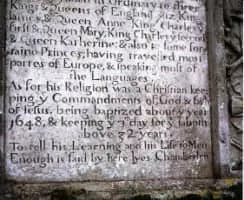 in Ordinary to three
Kings & Queens of England, viz. King
James & Queen Anne, King Charles y
first & Queen Mary, King Charles y second
& Queen Katherine; & also to some fore
raine Princes; having travelled most
partes of Europe, & speaking most of
the Languages.
As for his Religion was a Christian keep
ing y Commandments of God & faith
of Jesus, being baptized about y year
1648, & keeping y 7 day for y Sabbath
above 32 years.
To tell his Learning and his Life to Men
Enough is said by here lyes Chamberlen